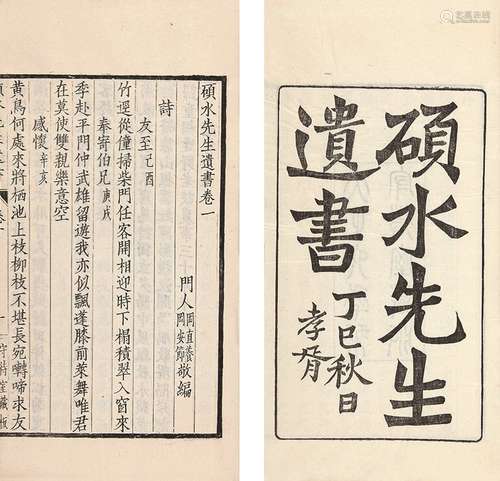 碩水先生
遺書
丁巳秋日
孝胥
碩水先生遺書卷一
門人岡直養
岡安節敬編
詩
友至己酉
竹逕從僮掃柴門任客開相迎時下榻積翠入窗來
奉寄伯兄庚戌
季赴平門仲武雄留遊我亦似飄蓬膝前萊舞唯君
在莫使雙親樂意空
感懷辛亥
黃鳥何處來將栖池上枝柳枝不堪長宛囀啼求友